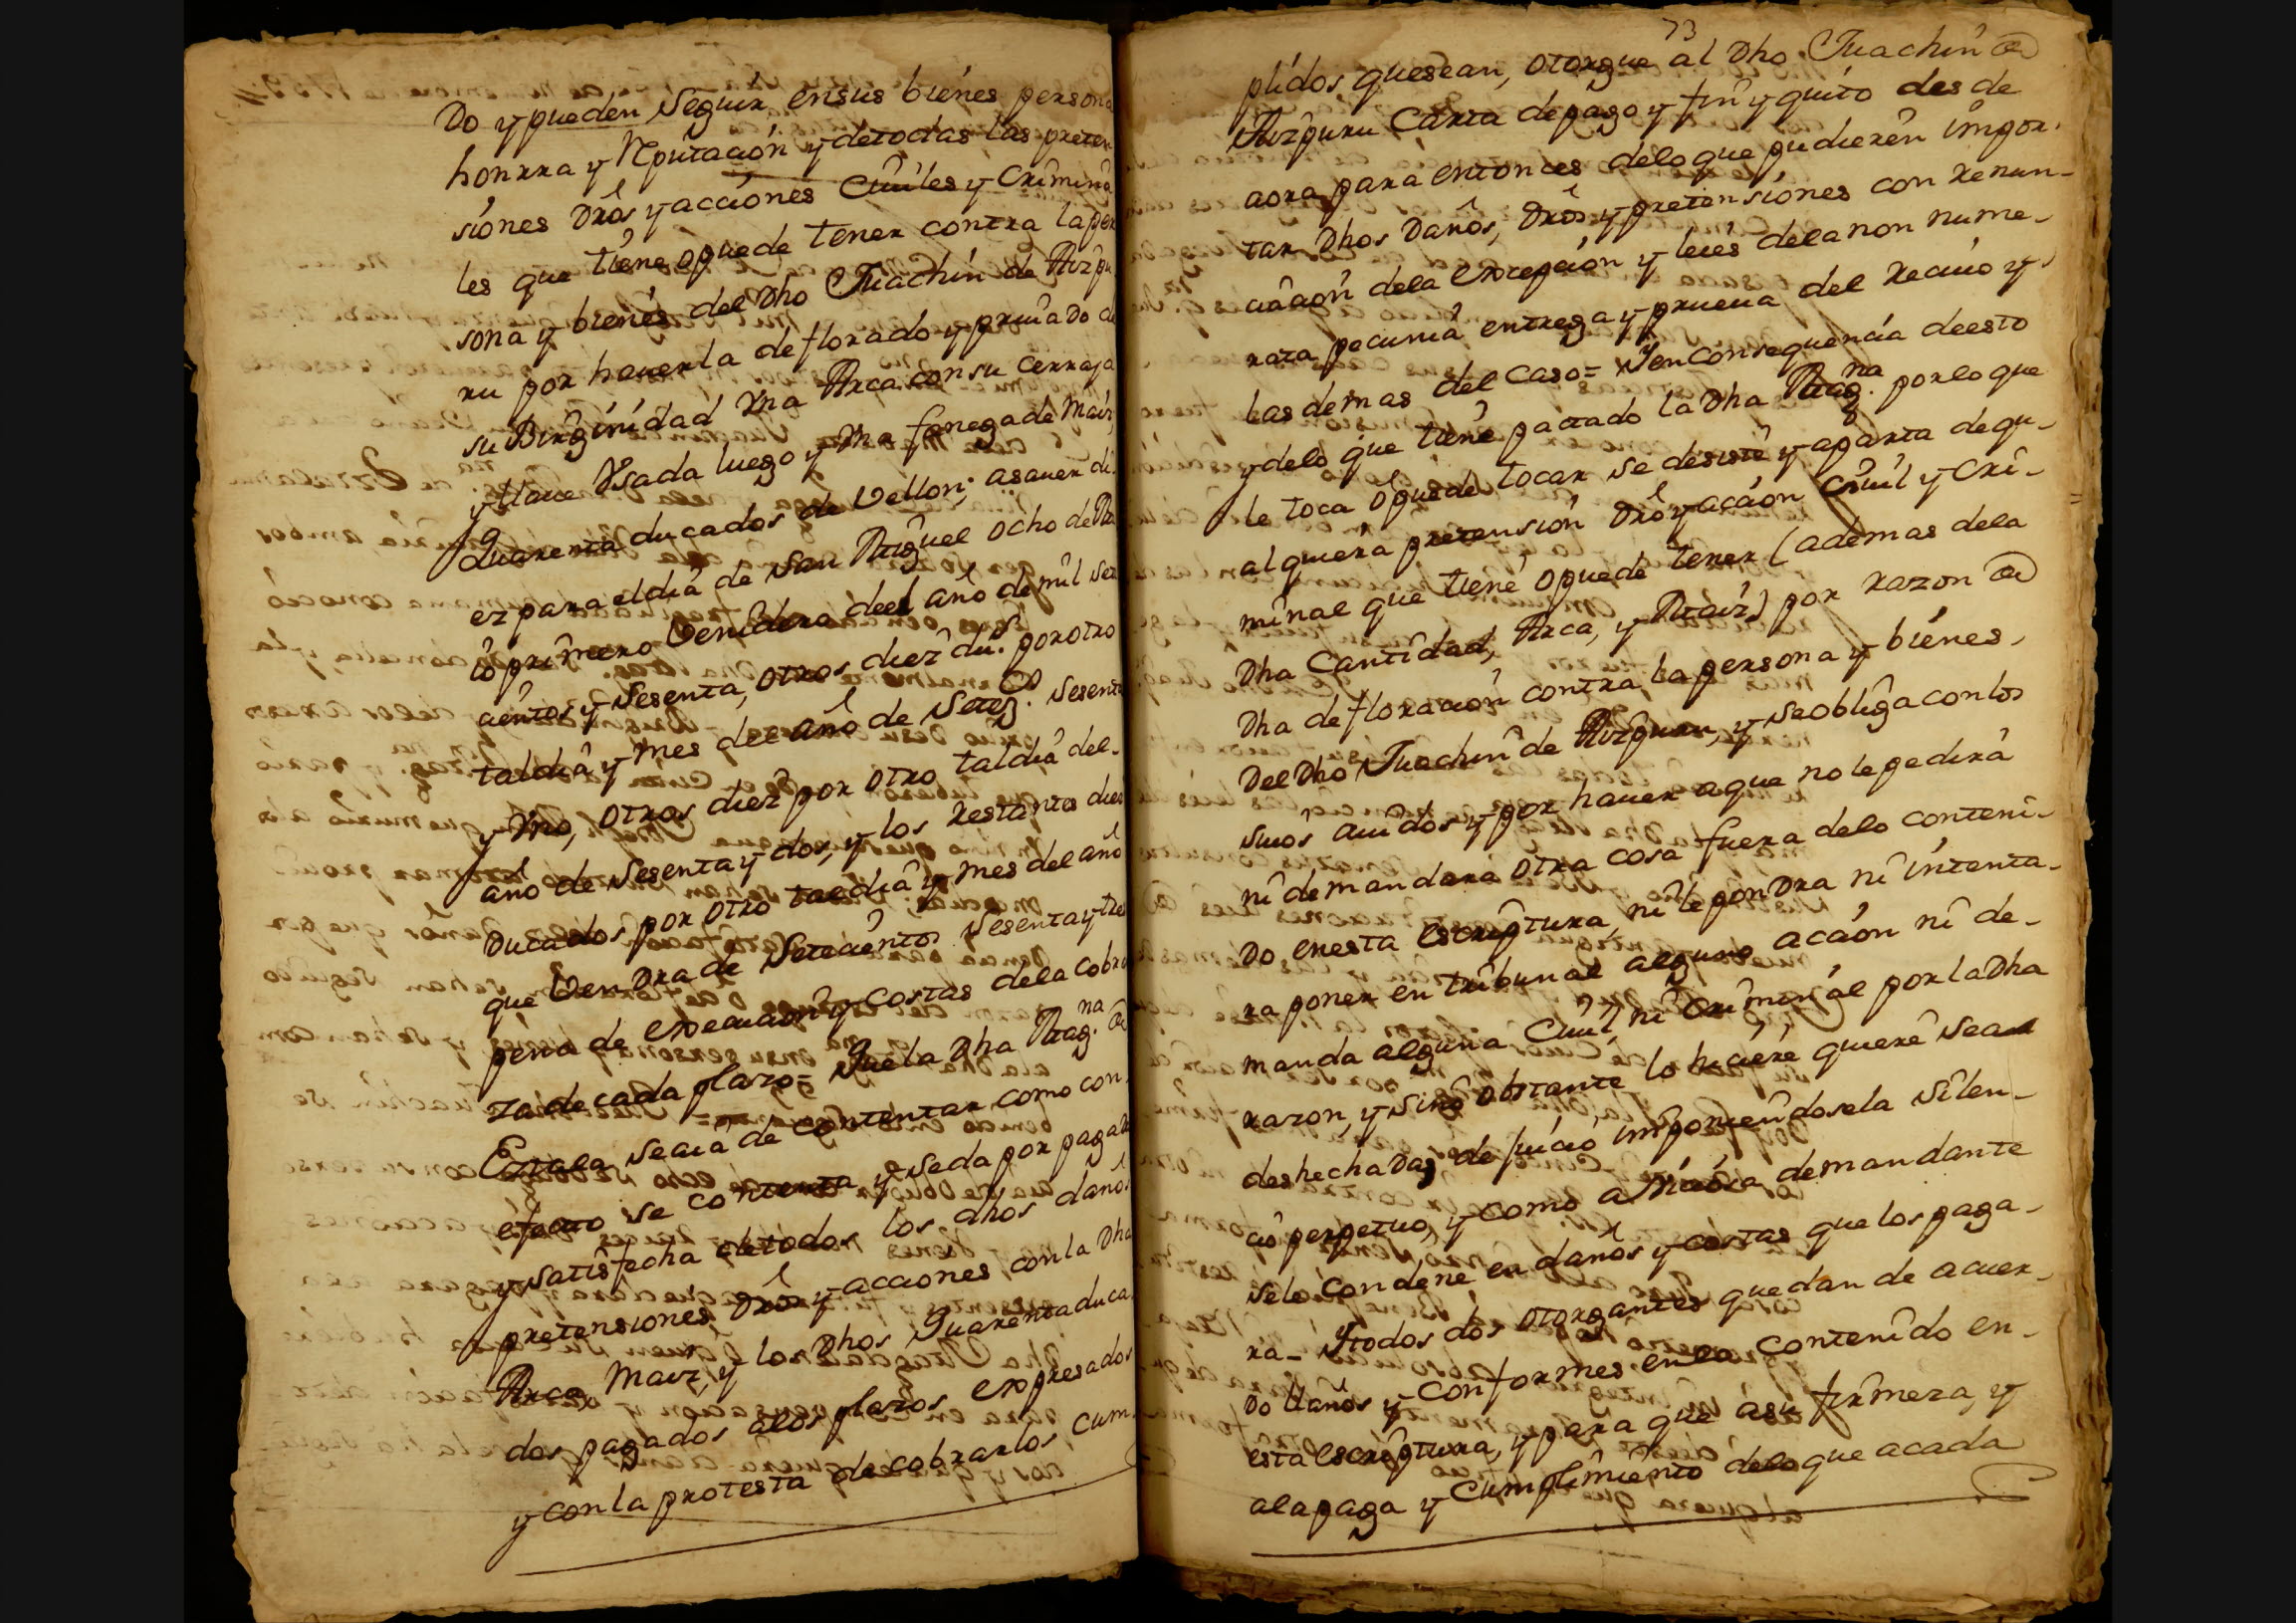 Do y pueden Seguir ensus bienes persona
honrra y Rputación y detodas las preten
siones dros y acciones Ciuiles y Crimina
les que tiene opuede tener contra laper
sona y bienes del Dho Juachin de Aizpu
ru por hauerla deflorado y priuado de
su Birginidad Vna Arca con su Cerraja
y llaue Vsada luego y Vna fanega de Maiz,
Quarenta ducados de Vellon; asauer di
ez para el dia de San Miguel ocho de Ma
io primero Venidero deel año de mil sete
cientos y Sesenta, otros diez du.s por otro
tal dia y mes del año de Setez.os Sesenta
y Vno, otros diez por otro tal dia del
año de Sesenta y dos, y los Restantes diez
Ducados por otro tal dia y mes del año
que VenDra de Setecientos Sesenta y tres
pena de execucion y costas dela cobra
za de cada plazo= Que la Dha Mag.na de
Ezpala Seaia de contentar como con
efecto se contenta y se da por pagada
y satisfecha de todos los dhos daños
pretensiones Dros y acciones con la Dha
Arca, Maiz, y los Dhos Quarenta duca
dos pagados alos plazos expresados
y con la protesta de cobrarlos cum
73
plidos quesean, otorgue al Dho Juachin de
Aizpuru Carta depago y fin y quito des de
aora para entonces delo que pudieren impor
tar Dhos Daños, Dros y pretensiones con renun-
ciacion dela excepcion y leies dela non nume-
rata pecunia entrega y prueua del Reciuo y
las demas del caso= Yen consequencia deesto
y delo que tiene pactado la Dha Mag.na por lo que
le toca o puede tocar se desiste y aparta de qu-
alquiera pretension Dro y acción Ciuil y Cri-
minal que tiene o puede tener (ademas dela
Dha Cantidad, Arca, y Maiz) por razon de
Dha defloracion contra la persona y bienes
Del Dho Juachin de Aizpuru, y se obliga con los
suios auidos y por hauer a que no le pedirá
ni demandara otra cosa fuera delo conteni-
Do enesta escriptura, ni le ponDra ni intenta-
ra poner en tribunal alguno acción ni de-
manda alguna Ciuil ni Criminal por la Dha
razon, y si no obstante lo hiciere quiere sea
deshechada de juicio imponiendosela silen-
cio perpetuo, y como a Núeba demandante
selo condene en daños y costas que los paga-
ra- Ytodos dos otorgantes quedan de acuer-
Do llanos y conformes en lo contenido en-
esta escriptura, y para que asu firmeza, y
ala paga y Cumplimiento delo que acada